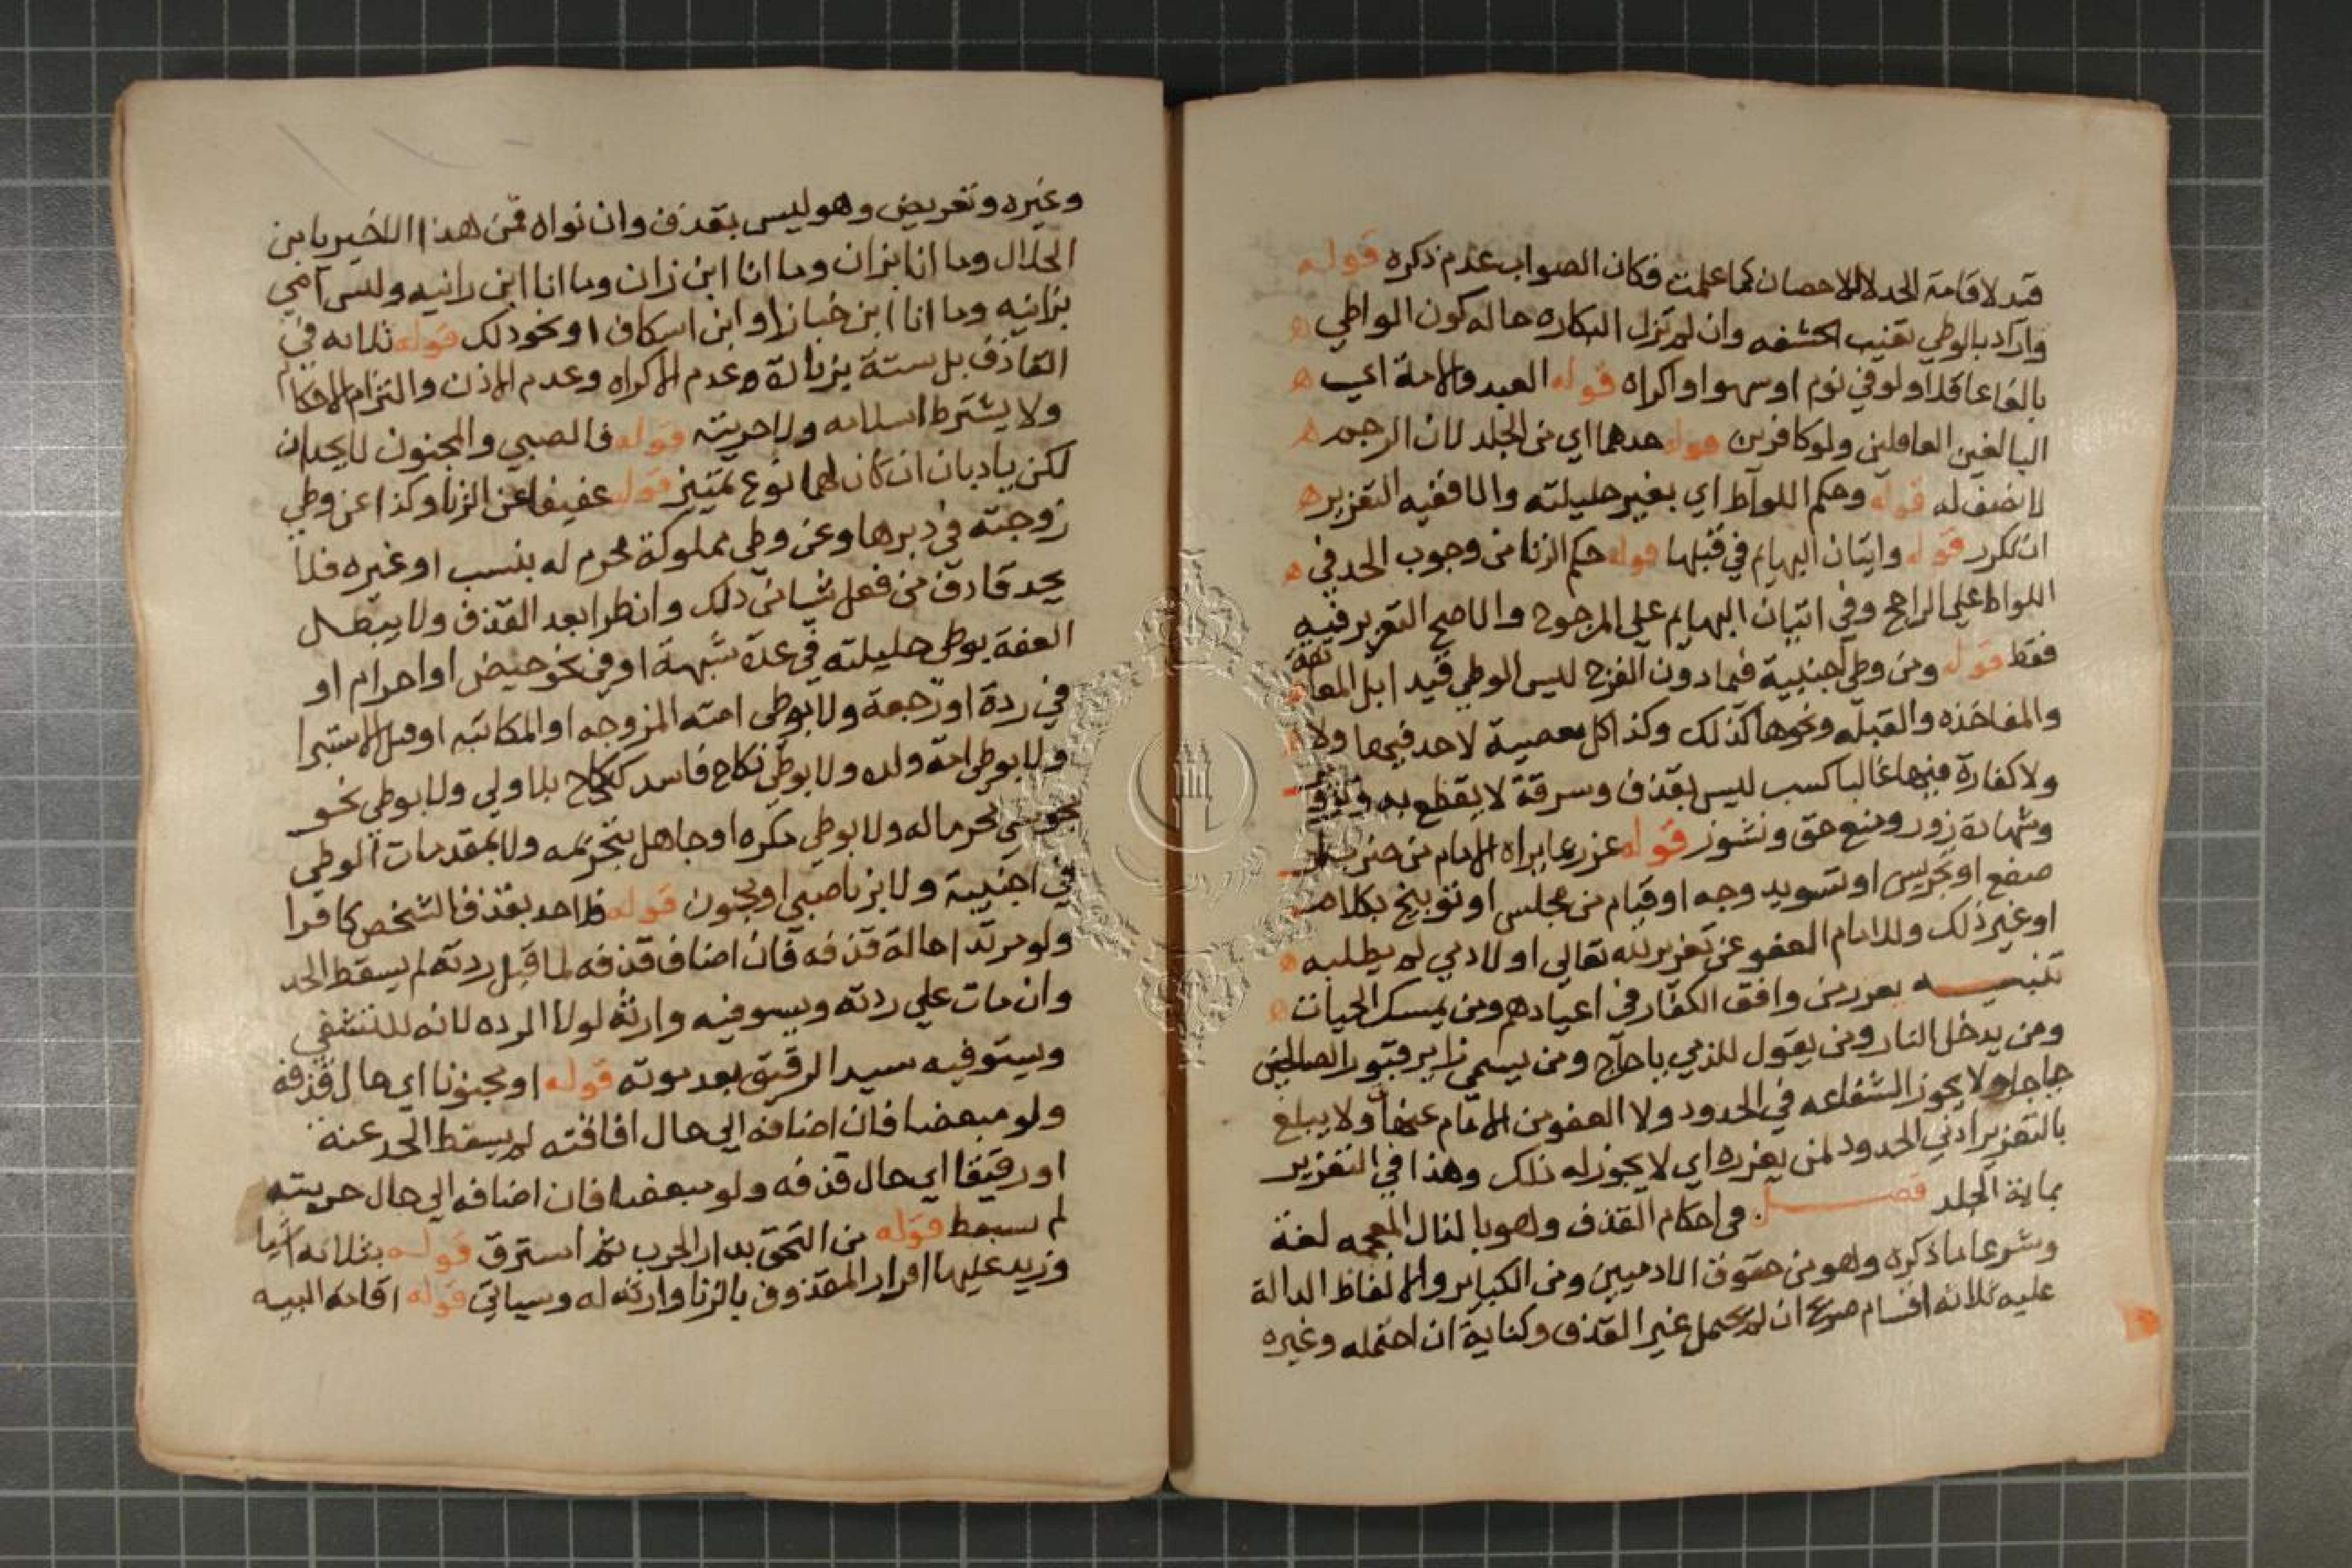 قيد لاقامة الحد لا للاحصان كما علمت فكان الصواب عدم ذكره قوله
واراد بالوطي تغييب الحشفه وان لم تزل البكاره حاله كون الواطي
بالغا عاقلا ولو في نوم او سهو او اكراه قوله العبد والامة اي
البالغين العاقلين ولو كافرين قوله حدهما اي من الجلد لان الرجم
لا نصف له قوله وحكم اللواط اي بغير حليلته والا ففيه التعزير
ان تكرر قوله واتيان البهايم في قبلها قوله حكم الزنا من وجوب الحد في
اللواط على الراجح وفي اتيان البهايم علي المرجوح والاصح التعزير فيه
فقط قوله ومن وطي اجنبية فيما دون الفرج ليس الوطي قيدا بل المعانقة
والمفاخذه والقبله ونحوها كذلك وكذا كل معصية لا حد فيها ولا
ولا كفارة منها غالبا كسب ليس بقذف وسرقة لا يقطع به وتزوير
وشهادة زور ومنع حق ونشوز قوله عزر بما يراه الامام من ضرب او
صفع او تجريس او تسويد وجه او قيام من مجلس او توبيخ بكلام
او غير ذلك وللامام العفو عن تعزير لله تعالي او لادمي لم يطلبه
تنبيه يعزر من وافق الكفار في اعيادهم ومن يمسك الحيات
ومن يدخل النار ومن يقول للذمي يا حاج ومن يسمي زاير قبور الصالحين
حاجا ولا يجوز الشفاعه في الحدود ولا العفو من الامام عنها ولا يبلغ
بالتعزير ادني الحدود لمن يعزره اي لا يجوز له ذلك وهذا في التعزير
بماية الجلد فصل في احكام القذف وهو بالذال المعجمه لغة
وشرعا ما ذكره وهو من حقوق الادميين ومن الكباير والالفاظ الدالة
عليه ثلاثه اقسام صريح ان لم يحتمل غير القذف وكناية ان احتمله وغيره
وغيره وتعريض وهو ليس بقذف وان نواه فمن هذا الاخير يا بن
الحلال وما انا بزان وما انا ابن زان وما انا ابن زانيه وليس امي
بزانيه وما انا ابن خباز او ابن اسكاف او نحو ذلك قوله ثلاثه في
القاذف بل ستة بزيادة وعدم الاكراه وعدم الاذن والتزام الاحكام
ولا يشترط اسلامه ولا حريته قوله فالصبي والمجنون لا يحدان
لكن يادبان ان كان لهما نوع تمييز قوله عفيفا عن الزنا وكذا عن وطي
زوجته في دبرها وعن وطي مملوكة محرم له بنسب او غيره فلا
يحد قاذف من فعل شيا من ذلك وان طرا بعد القذف ولا يبطل
العفة بوطي حليلته في عدة شبهة او في نحو حيض او احرام او
في ردة او رجعة ولا بوطي امته المزوجه او المكاتبه او قبل الاستبرا
ولا بوطي امة ولده ولا بوطي نكاح فاسد كنكاح بلا ولي ولا بوطي نحو
مجوسي محرما له ولا بوطي مكره او جاهل بتحريمه ولا بمقدمات الوطي
في اجنبية ولا بزنا صبي او مجنون قوله فلا حد بقذف الشخص كافرا
ولو مرتدا حالة قذفه فان اضاف قذفه لما قبل ردته لم يسقط الحد
وان مات علي ردته ويستوفيه وارثه لولا الرده لانه للتشفي
ويستوفيه سيد الرقيق بعد موته قوله او مجنونا اي حال قذفه
ولو مبعضا فان اضافه الي حال افاقته لم يسقط الحد عنه
او رقيقا اي حال قذفه ولو مبعضا فان اضافه الي حال حريته
لم يسقط قوله من التحق بدار الحرب ثم استرق قوله بثلاثه اشيا
وزيد عليها اقرار المقذوف بالزنا وارثه له وسياتي قوله اقامة البينه